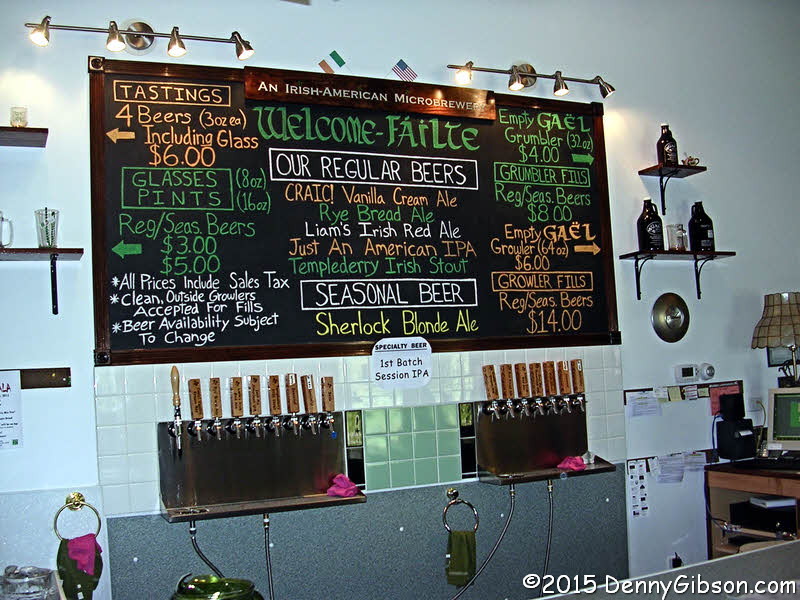 AN IRISH-AMERICAN MICROBREWERY
WELCOME-FÁILTE
TASTINGS
4 Beers (3oz ea)
Including Glass
$6.00
GLASSES (8oz)
PINTS (16oz)
Reg/Seas. Beers
$3.00
$5.00
*All Prices Include Sales Tax
*Clean, Outside Growlers
Accepted For Fills
*Beer Availability Subject
To Change
OUR REGULAR BEERS
CRAIC! Vanilla Cream Ale
Rye Bread Ale
Liam's Irish Red Ale
Just An American IPA
Templederry Irish Stout
SEASONAL BEER
Sherlock Blonde Ale
Empty GAËL
Grumbler (32oz)
$4.00
GRUMBLER FILLS
Reg/Seas. Beers
$8.00
Empty GAËL
Growler (64oz)
$6.00
GROWLER FILLS
Reg/Seas. Beers
$14.00
SPECIALTY BEER
1st Batch
Session IPA
©2015 DennyGibson.com